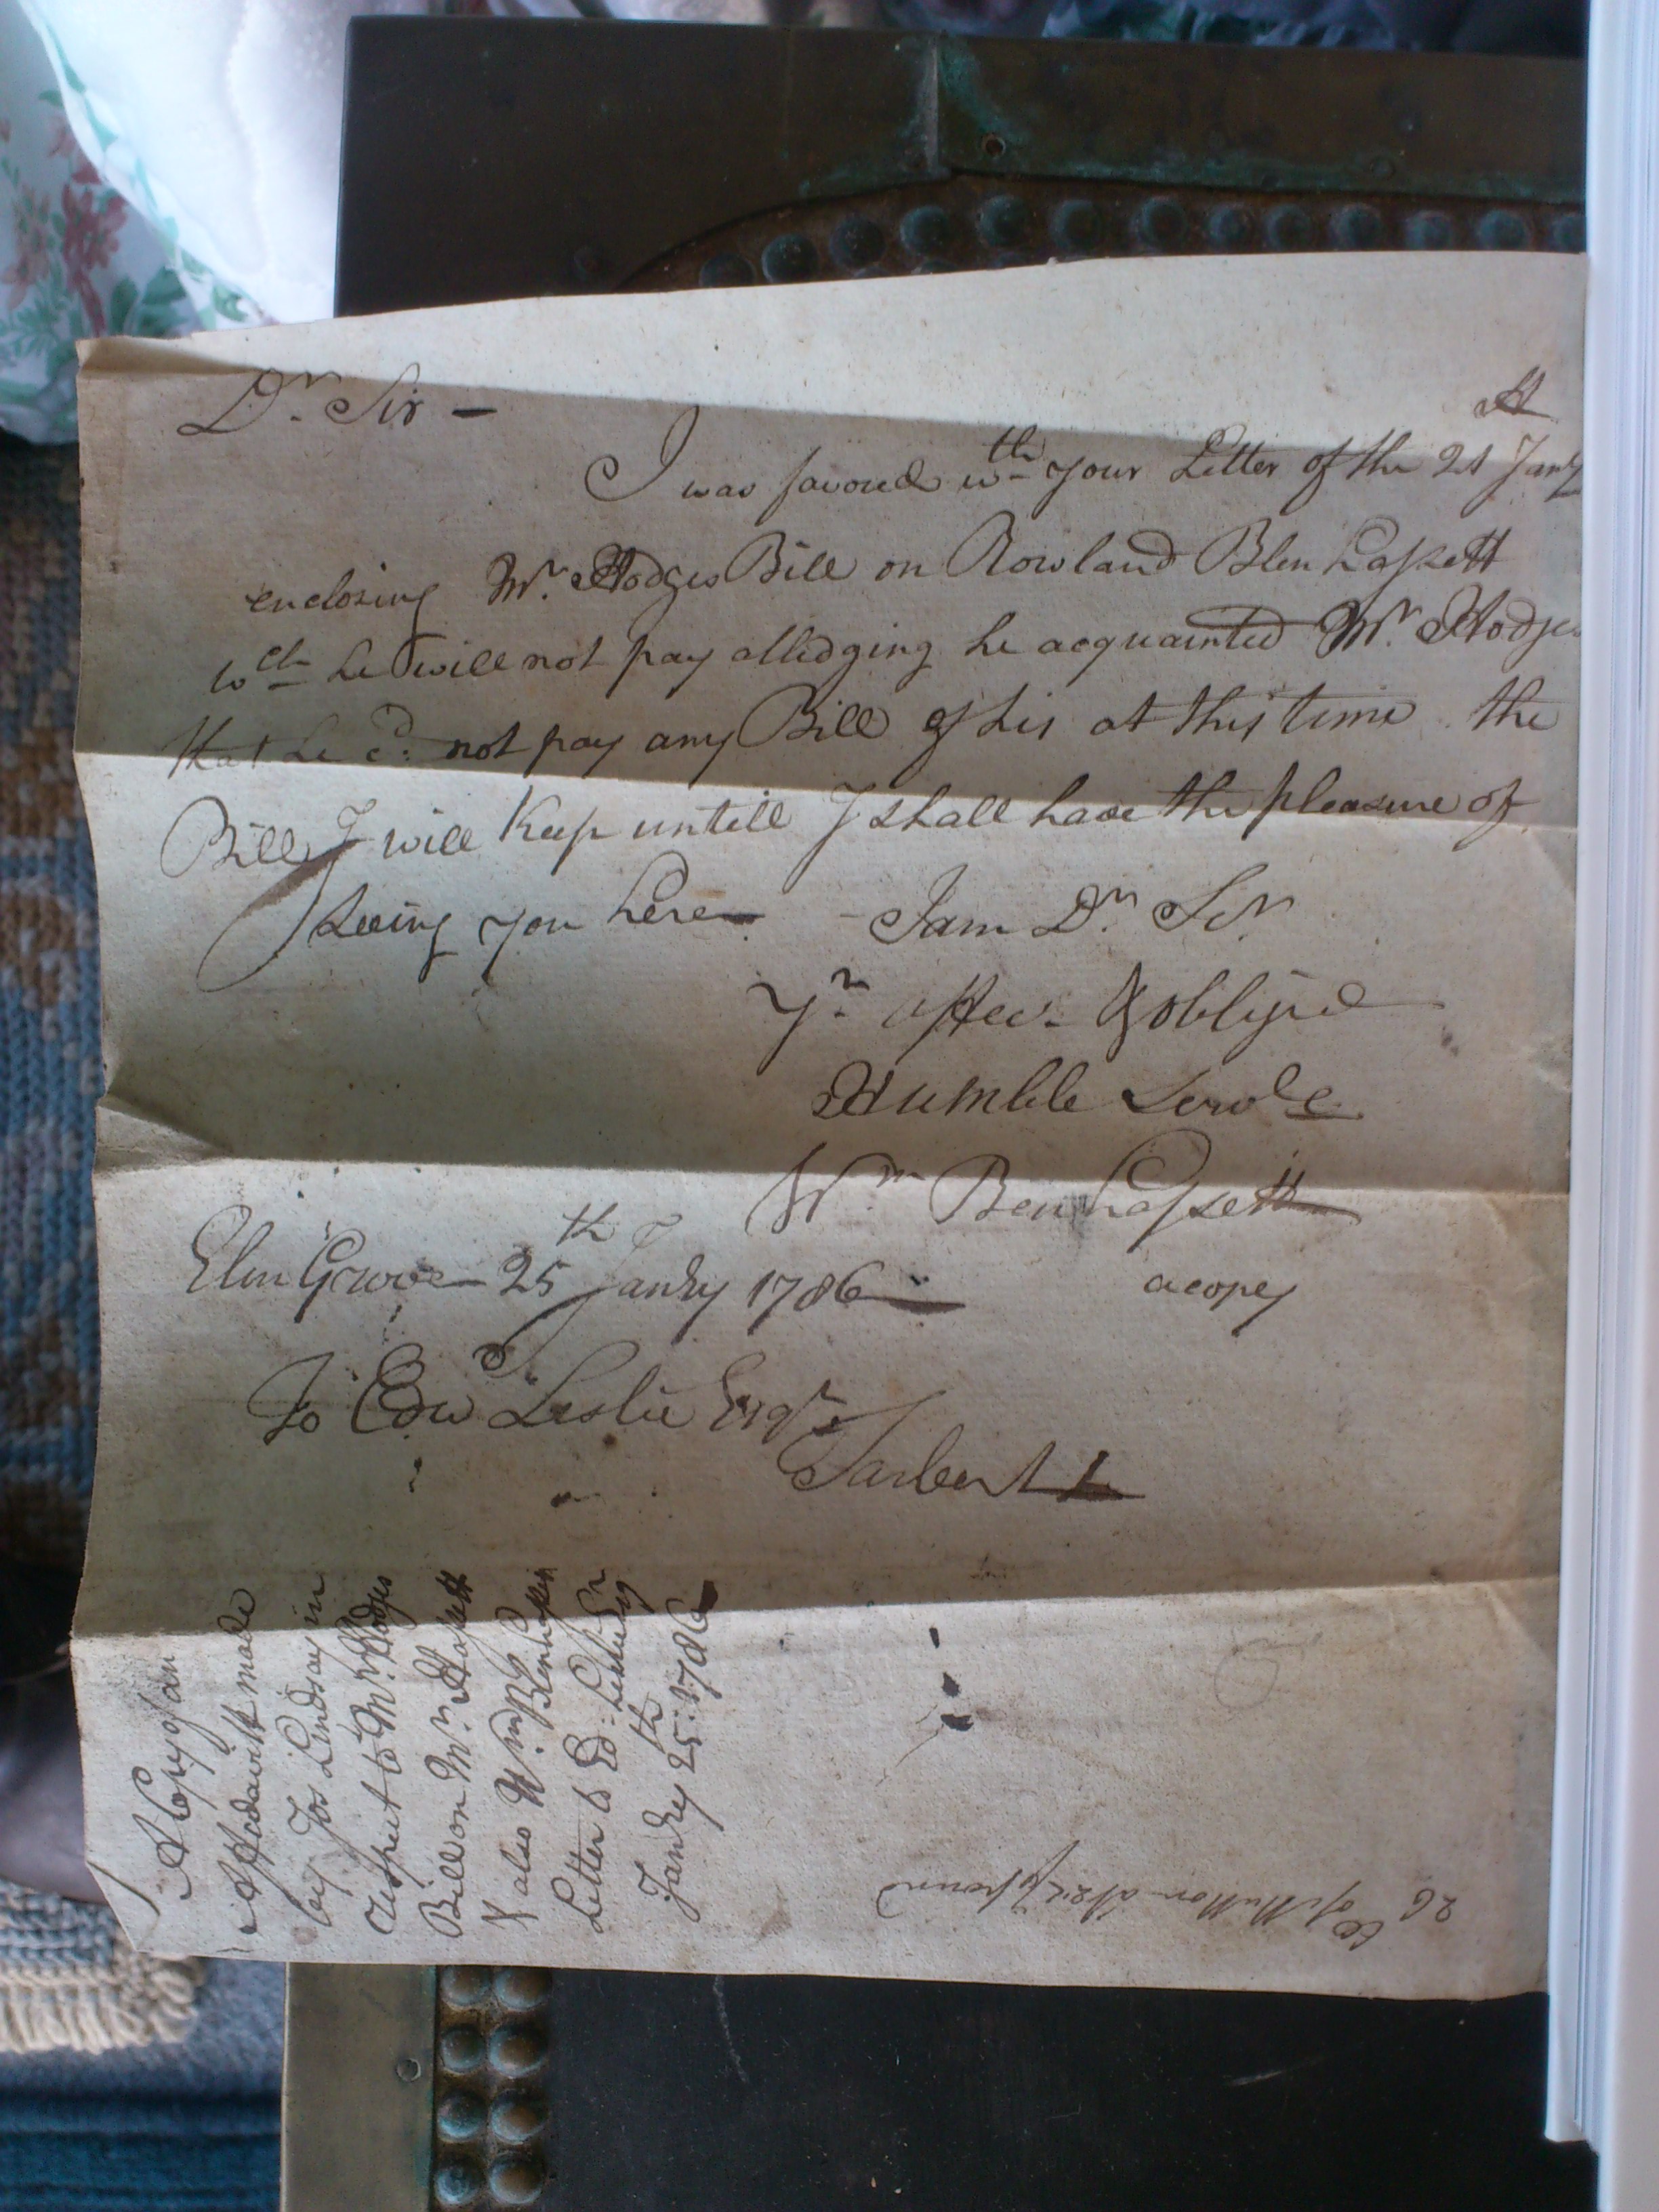 Dr. Sir —
I was favored wth your Letter of the 21 Janry
enclosing Mr. Hodges Bill on Rowland Blenhassett
wch he will not pay alledging he acquainted Mr. Hodges
that he cd. not pay any Bill of his at this time the
Bill I will Keep untill I shall have the pleasure of
Seeing you here — I am Dr. Sir.
Yr. Affec. & oblijed
Humble Serv
Wm. Benhassett
Elm Grove 25th Janry 1786
a copey
To Edwd Leslie Esqr.
Tarbert
A Copy of an
Affidavitt made
by Jos Lindsay in
respect to Mr. Hodges
Bill on Mr. Hassett
& also Wm. Blenhassett
Letter to Ed: Leslie Esqr
Janry 25th: 1786
26
of Mutton at